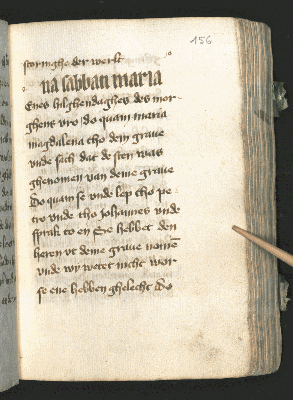 156
storinghe der werlt
na sabban maria
Enes hilghendaghes des mor-
ghens vro do quam maria
magdalena tho dem graue
vnde sach dat de sten was
ghenomen van deme graue
Do quam se vnde lep tho pe
tro vnde tho Johannes vnde
sprak to en Se hebbet den
heren vt deme graue nome
vnde wy weten nicht wor
se ene hebben ghelecht Do